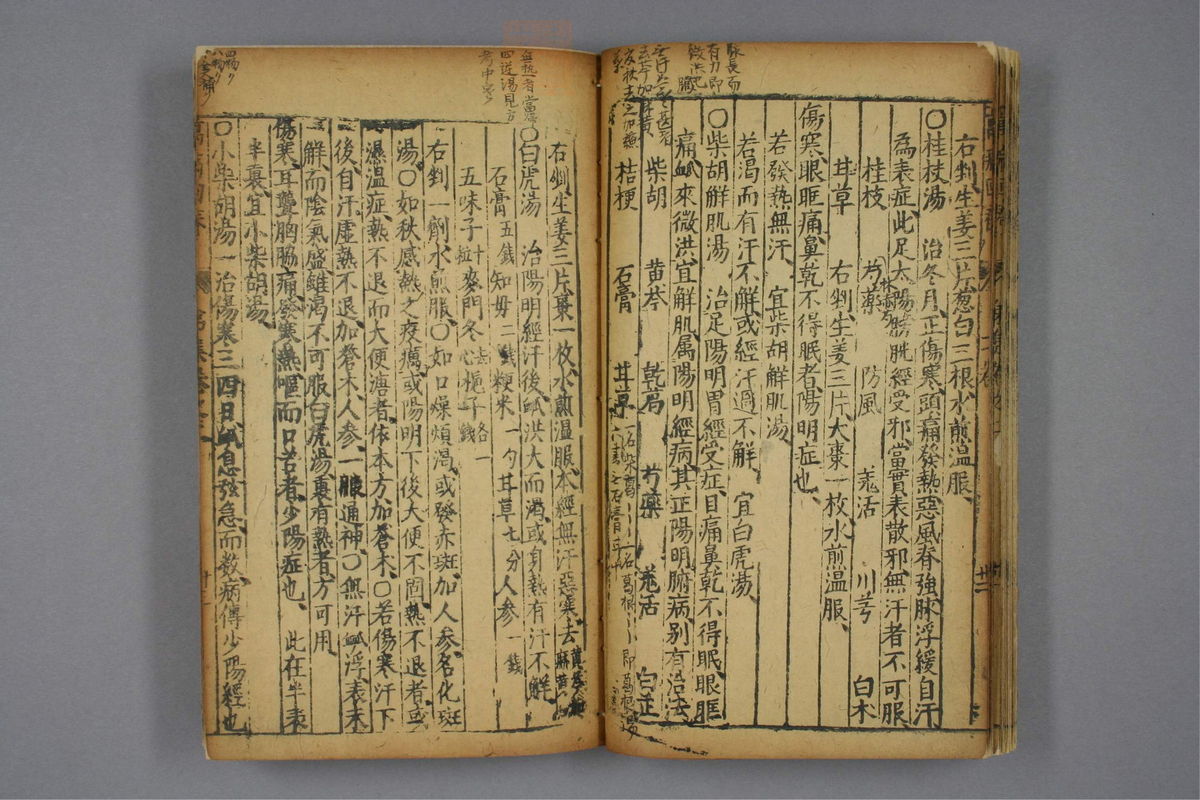 右剉生姜三片葱白三根水煎温服
〇桂枝湯 治冬月正傷寒頭痛發熱惡風脊強脉浮緩自汗
為表症此足太陽膀胱經受邪當實表散邪無汗者不可服
桂枝 芍薬 防風 羌活 川芎 白术
甘草 右剉生姜三片大棗一枚水煎温服
傷寒眼眶痛鼻乾不得眠者陽明症也
若發熱無汗 宜柴胡解肌湯
若渴而有汗不解或經汗過不解 宜白虎湯
〇柴胡解肌湯 治足陽明胃經受症目痛鼻乾不得眠眼眶
痛脉來微洪宜解肌属陽明經病其正陽明腑病别有治法
柴胡 黄芩 乾葛 芍藥 羌活 白芷
桔梗 石膏 甘草
脉長而
有力即
右剉生姜三片棗一枚水煎温服本經無汗惡寒去黄芩加麻黄
〇白虎湯 治陽明經汗後脉洪大而渴或身熱有汗不解
石膏五錢 知母二錢 粳米一勺 甘草七分 人参一錢
五味子十粒 麥門冬去心 梔子各一錢
右剉一劑水煎服〇如口燥煩渴或發赤斑加人参名化斑
湯〇如秋感熱之疫癘或陽明下後大便不固熱不退者或
濕温症熱不退而大便溏者依本方加蒼术〇若傷寒汗下
後自汗虚熱不退加蒼术人参一服通神〇無汗脉浮表未
解而陰氣盛雖渴不可服白虎湯裏有熱者方可用
傷寒耳聾胸脇痛發寒熱嘔而口苦者少陽症也 此在半表
半裏宜小柴胡湯
〇小柴胡湯 治傷寒三四日脉息弦急而数病傳少陽經也